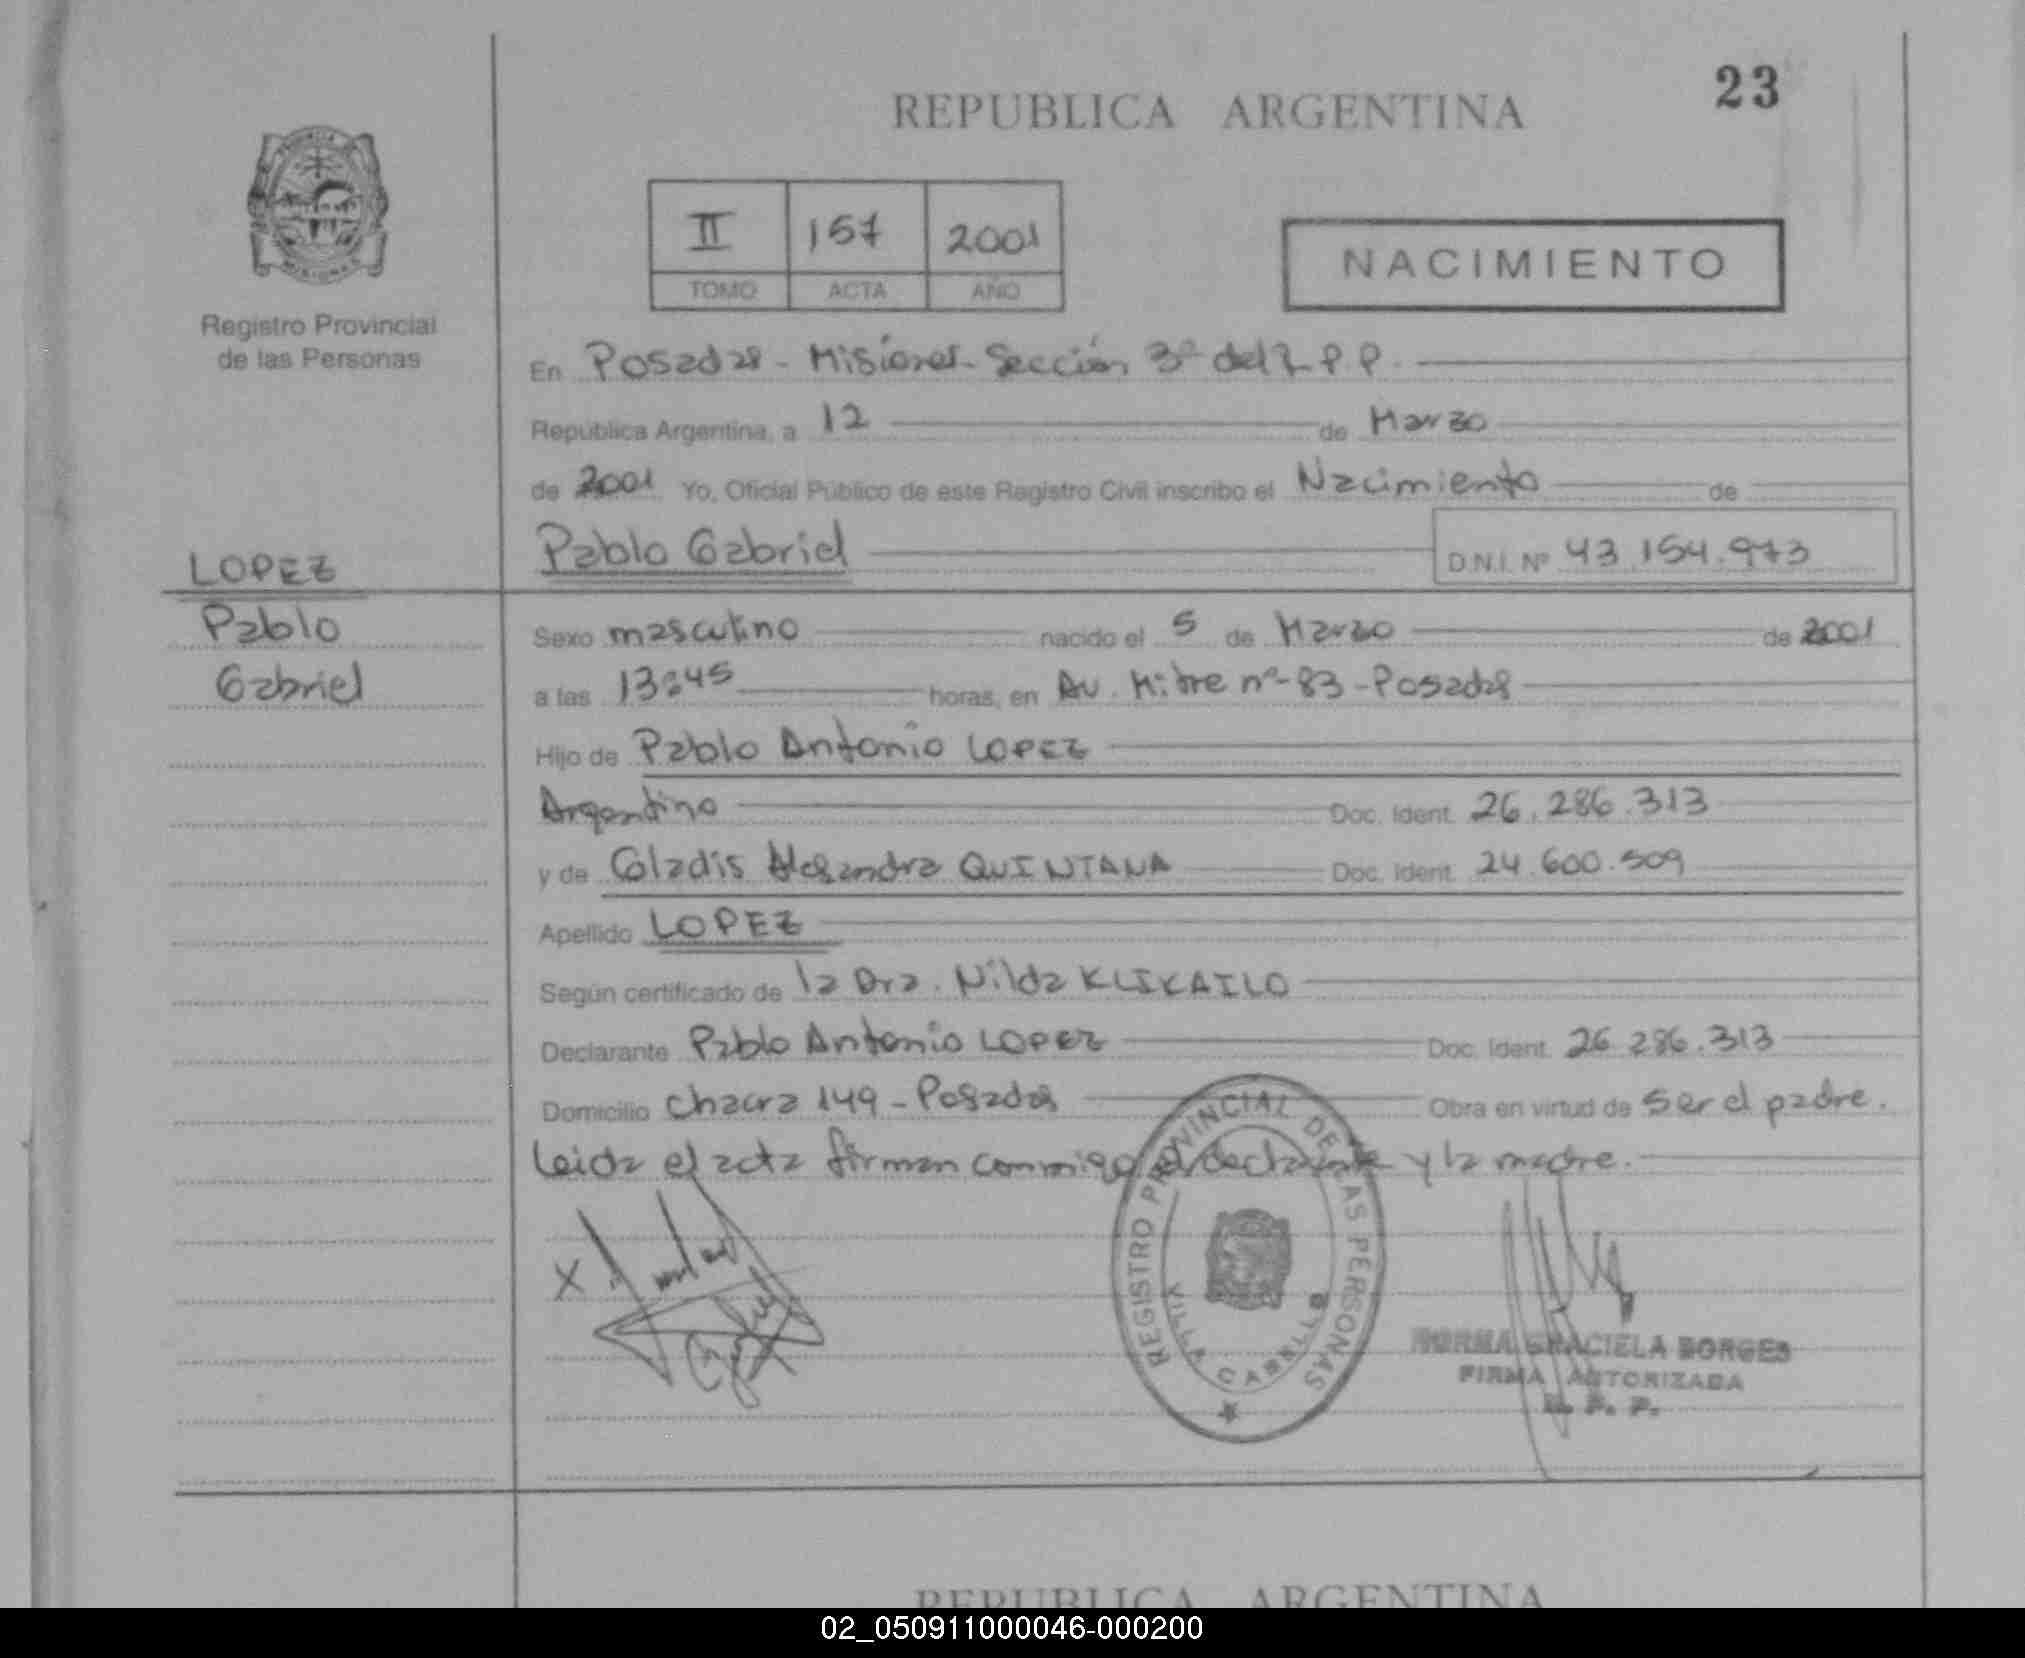 REPUBLICA ARGENTINA
23
II 157 2001
TOMO ACTA AÑO
NACIMIENTO
MISIONES
Registro Provincial
de las Personas
En Posadas - Misiones - Sección 3ª del R.P.P.
República Argentina, a 12 de Marzo
de 2001 Yo, Oficial Público de este Registro Civil inscribo el Nacimiento de
Pablo Gabriel D.N.I. Nº 43.154.973
LOPEZ
Pablo
Gabriel
Sexo masculino nacido el 5 de Marzo de 2001
a las 13:45 horas, en Av. Mitre nº-83-Posadas
Hijo de Pablo Antonio LOPEZ
Argentino Doc. Ident. 26.286.313
y de Gladis Alejandra QUINTANA Doc. Ident. 24.600.509
Apellido LOPEZ
Según certificado de la Dra. Nilda KLIKAILO
Declarante Pablo Antonio LOPEZ Doc. Ident. 26.286.313
Domicilio Chacra 149 - Posadas Obra en virtud de ser el padre.
Leida el acta firman conmigo el declarante y la madre.
X
REGISTRO PROVINCIAL DE LAS PERSONAS
VILLA CABELLO
NORMA GRACIELA BORGES
FIRMA AUTORIZADA
R. P. P.
REPUBLICA ARGENTINA
02_050911000046-000200